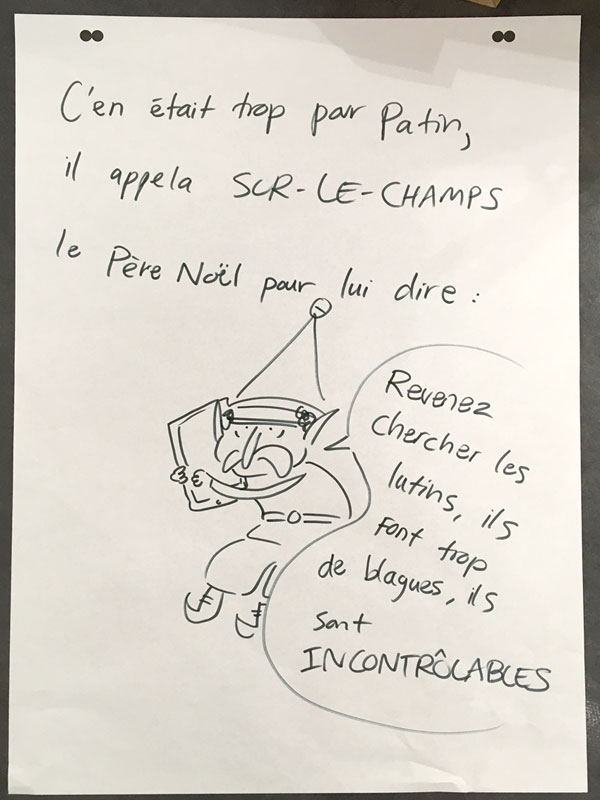 C'en était trop par Patin,
il appela SUR-LE-CHAMPS
le Père Noël pour lui dire :
Revenez
chercher les
lutins, ils
font trop
de blagues, ils
sont
INCONTRÔLABLES